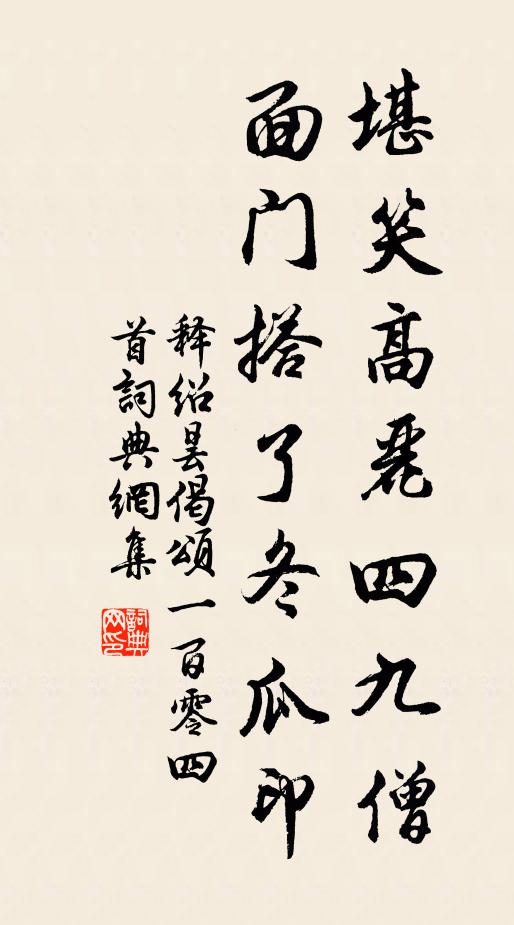 堪笑高麗四九僧
面门搭了冬瓜印
释绍昙偈頌一百零四
首詞典網集
詞典网印